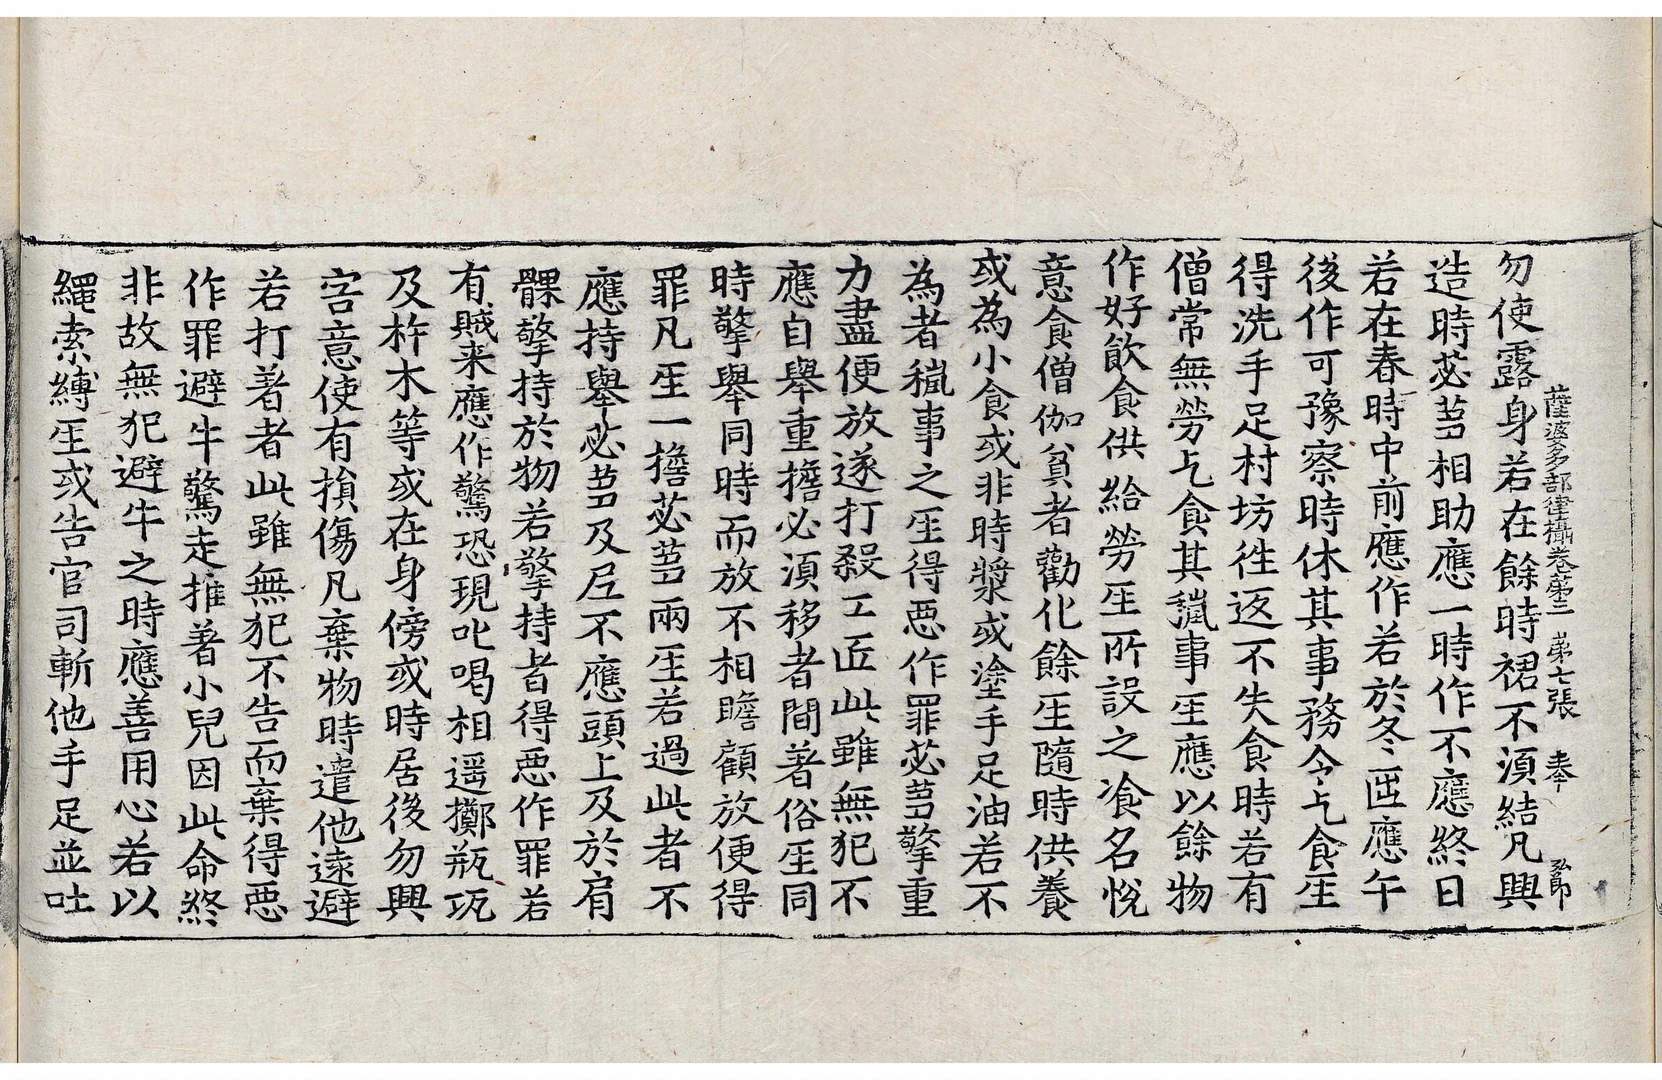 薩婆多部律攝卷第三　第七張　奉　弘郎
勿使露身若在餘時裙不須結凡興
造時苾芻相助應一時作不應終日
若在春時中前應作若於冬𠥱應午
後作可豫察時休其事務令乞食𤯔
得洗手足村坊徃返不失食時若有
僧常無勞乞食其穢事𤯔應以餘物
作好飲食供給勞𤯔所設之飡名悅
意食僧伽貧者勸化餘𤯔隨時供養
或為小食或非時漿或塗手足油若不
為者穢事之𤯔得惡作罪苾芻擎重
力盡便放遂打殺工匠此雖無犯不
應自舉重擔必須移者間著俗𤯔同
時擎舉同時而放不相瞻顧放便得
罪凡𤯔一擔苾芻兩𤯔若過此者不
應持舉苾芻及尼不應頭上及於肩
髁擎持於物若擎持者得惡作罪若
有賊来應作驚恐現叱喝相遥擲瓶瓨
及杵木等或在身傍或時居後勿興
害意使有損傷凡棄物時遣他遠避
若打著者此雖無犯不告而棄得惡
作罪避牛驚走推著小兒因此命終
非故無犯避牛之時應善用心若以
繩索縛𤯔或告官司斬他手足並吐